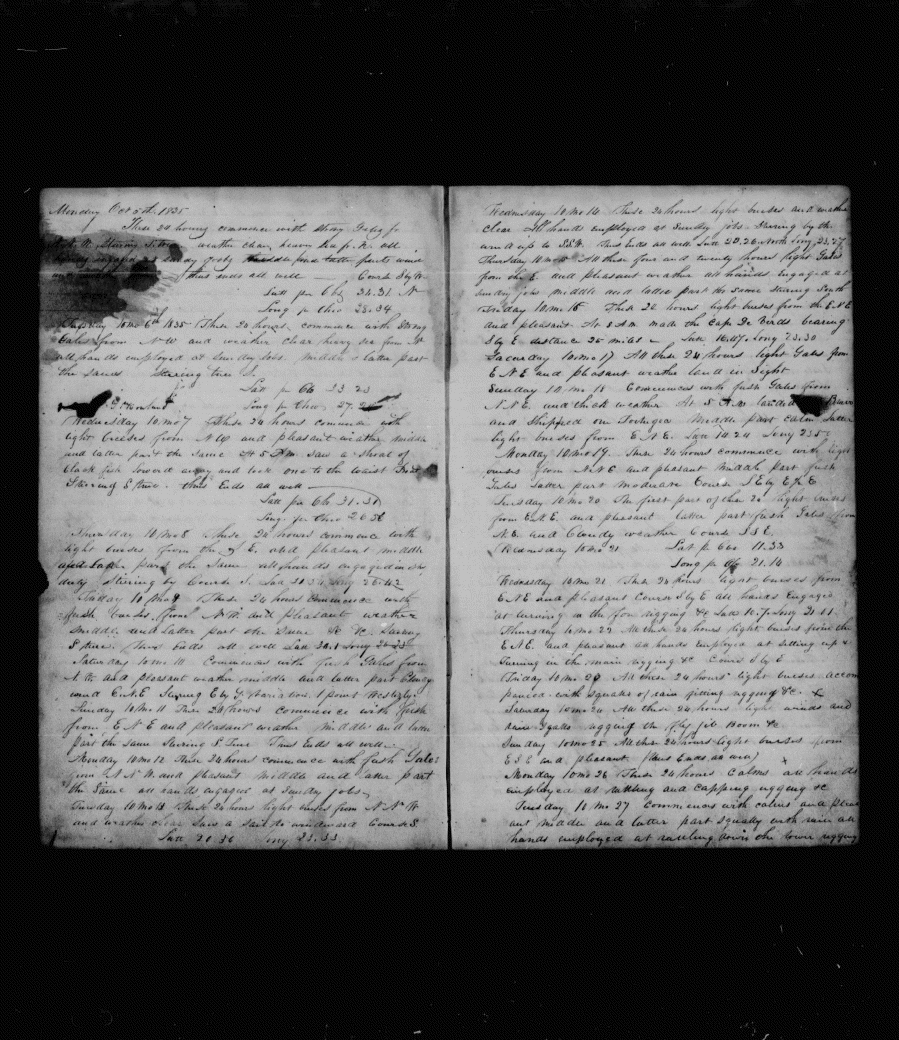 Monday Oct 5th 1835
These 24 hours commence with strong Gales f
weather clear heavy sea
middle and latter parts wind
thus ends all well Course S by W
Latt per Obs 34.31 N
Long per Chro 28.34
Tuesday 10 mo 6th 1835 These 24 hours commence with Strong
Gales from NW and weather clear heavy sea from
all hands employed at Sunday jobs. middle & latter part
the same Steering true S.
Latt per Obs 33 23
Long per Chro 27.
Wednesday 10 mo 7 These 24 hours commence with
light breeses from NW and pleasant weather middle
and latter part the same At 5 P.M. saw a Shoal of
black fish lowered away and
Steering S true. thus Ends all well
Latt per Obs 31.31
Long per Chro 26 56
Thursday 10 mo 8 These 24 hours commence with
light breeses from the E. and pleasant middle
and Latter part the Same all hands engaged in ship
duty Steering by Course S. Lat 30 34 Long 26.42
Friday 10 mo 9 These 24 hours Commence with
fresh breeses from NW and pleasant weather
middle and latter part the Same &c &c. Steering
S true. thus Ends all well Latt Long
Saturday 10 mo 10 Commences with fresh Gales from
and pleasant weather middle and latter part
wind E.N.E Steering by Variation 1 point Westerly.
Sunday 10 mo 11 These 24 hours commence with fresh
from E N E and pleasant weather middle and latter
part the same Steering S true Thus Ends all well
Monday 10 mo 12 These 24 hours commence with fresh Gales
from N N W and pleasant middle and latter part
the Same all hands engaged at Sunday jobs
Tuesday 10 mo 13 These 24 hours light breeses from N N W
and weather clear Saw a sail to windward Course S
Latt 20.36 Long 23.33
Wednesday 10 mo 14 These 24 hours light breeses and weather
clear All hands employed at Sunday jobs Stearing by the
wind up to S.S.W. Thus Ends all well Latt 20.26 North Long 23.27
Thursday 10 mo 15 All these four and twenty hours light Gales
from the E and pleasant weather all hands Engaged at
Sunday jobs middle and latter part the same Stearing South
Friday 10 mo 16 These 24 hours light breeses from the E.N.E
and pleasant At 5 A.M. made the Cape De Verds bearing
S by E distance 25 miles Latt 16.07 Long 23.30
Saturday 10 mo 17 All these 24 hours light Gales from
E N E and pleasant weather land in Sight
Sunday 10 mo 18 Commences with fresh Gales from
N.N.E. and thick weather At 5 A.M. landed
and Shipped one Portugee Middle part calm latter
light breeses from E.N.E. Lat 14.24 Long 23 5
Monday 10 mo 19. These 24 hours commence with light
breeses from N.N.E and pleasant Middle part fresh
Gales latter part moderate Course S E by E
Tuesday 10 mo 20 The first part of these 24 light breeses
from E.N.E. and pleasant latter part fresh Gales from
N.E. and Cloudy weather Course S S E
Wednesday 10 mo 21 Latt p Obs 11.33
Long p 21.14
Wednesday 10 mo 21 These 24 hours light breeses from
E N E and pleasant Course S by E all hands Engaged
at turning in the fore rigging &c Latt 10.7 Long 21.11
Thursday 10 mo 22 All these 24 hours light breeses from the
E N E. and pleasant all hands employed at setting up &
Turning in the main rigging &c Course S by E
Friday 10 mo 23 All these 24 hours light breeses accom
panied with squalls of rain fitting rigging &c. x
Saturday 10 mo 24 All these 24 hours light winds and
rain Squalls rigging the fly jib Boom &c
Sunday 10 mo 25 All these 24 hours light breeses from
E S E and pleasant (thus Ends as usu)
Monday 10 mo 26 These 24 hours Calms all hands
Employed at rattling and capping rigging &c
Tuesday 10 mo 27 Commences with calms and pleas
ant middle and latter part squally with rain all
hands employed at rattling down the lower rigging